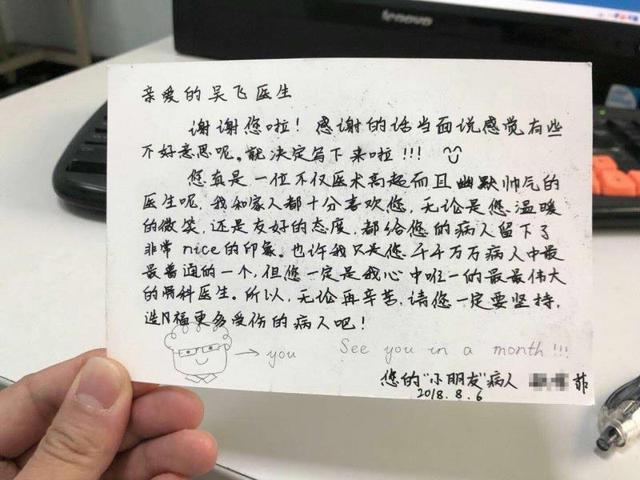 lenovo
亲爱的吴飞医生
谢谢您啦！感谢的话当面说感觉有些
不好意思呢。就决定写下来啦!!!
您真是一位不仅医术高超而且幽默帅气的
医生呢，我和家人都十分喜欢您，无论是您温暖
的微笑，还是友好的态度，都给您的病人留下了
非常nice的印象。也许我只是您千千万万病人中最
最普通的一个，但您一定是我心中唯一的最最伟大
的骨科医生。所以，无论再辛苦，请您一定要坚持，
造福更多受伤的病人吧！
→ you See you in a month!!!
您的“小朋友”病人 菲
2018.8.6